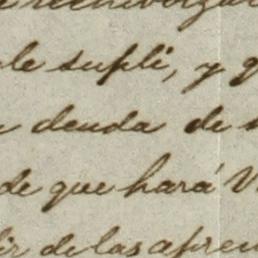 le supli, y
deuda de
de que hará V
dir de las apren